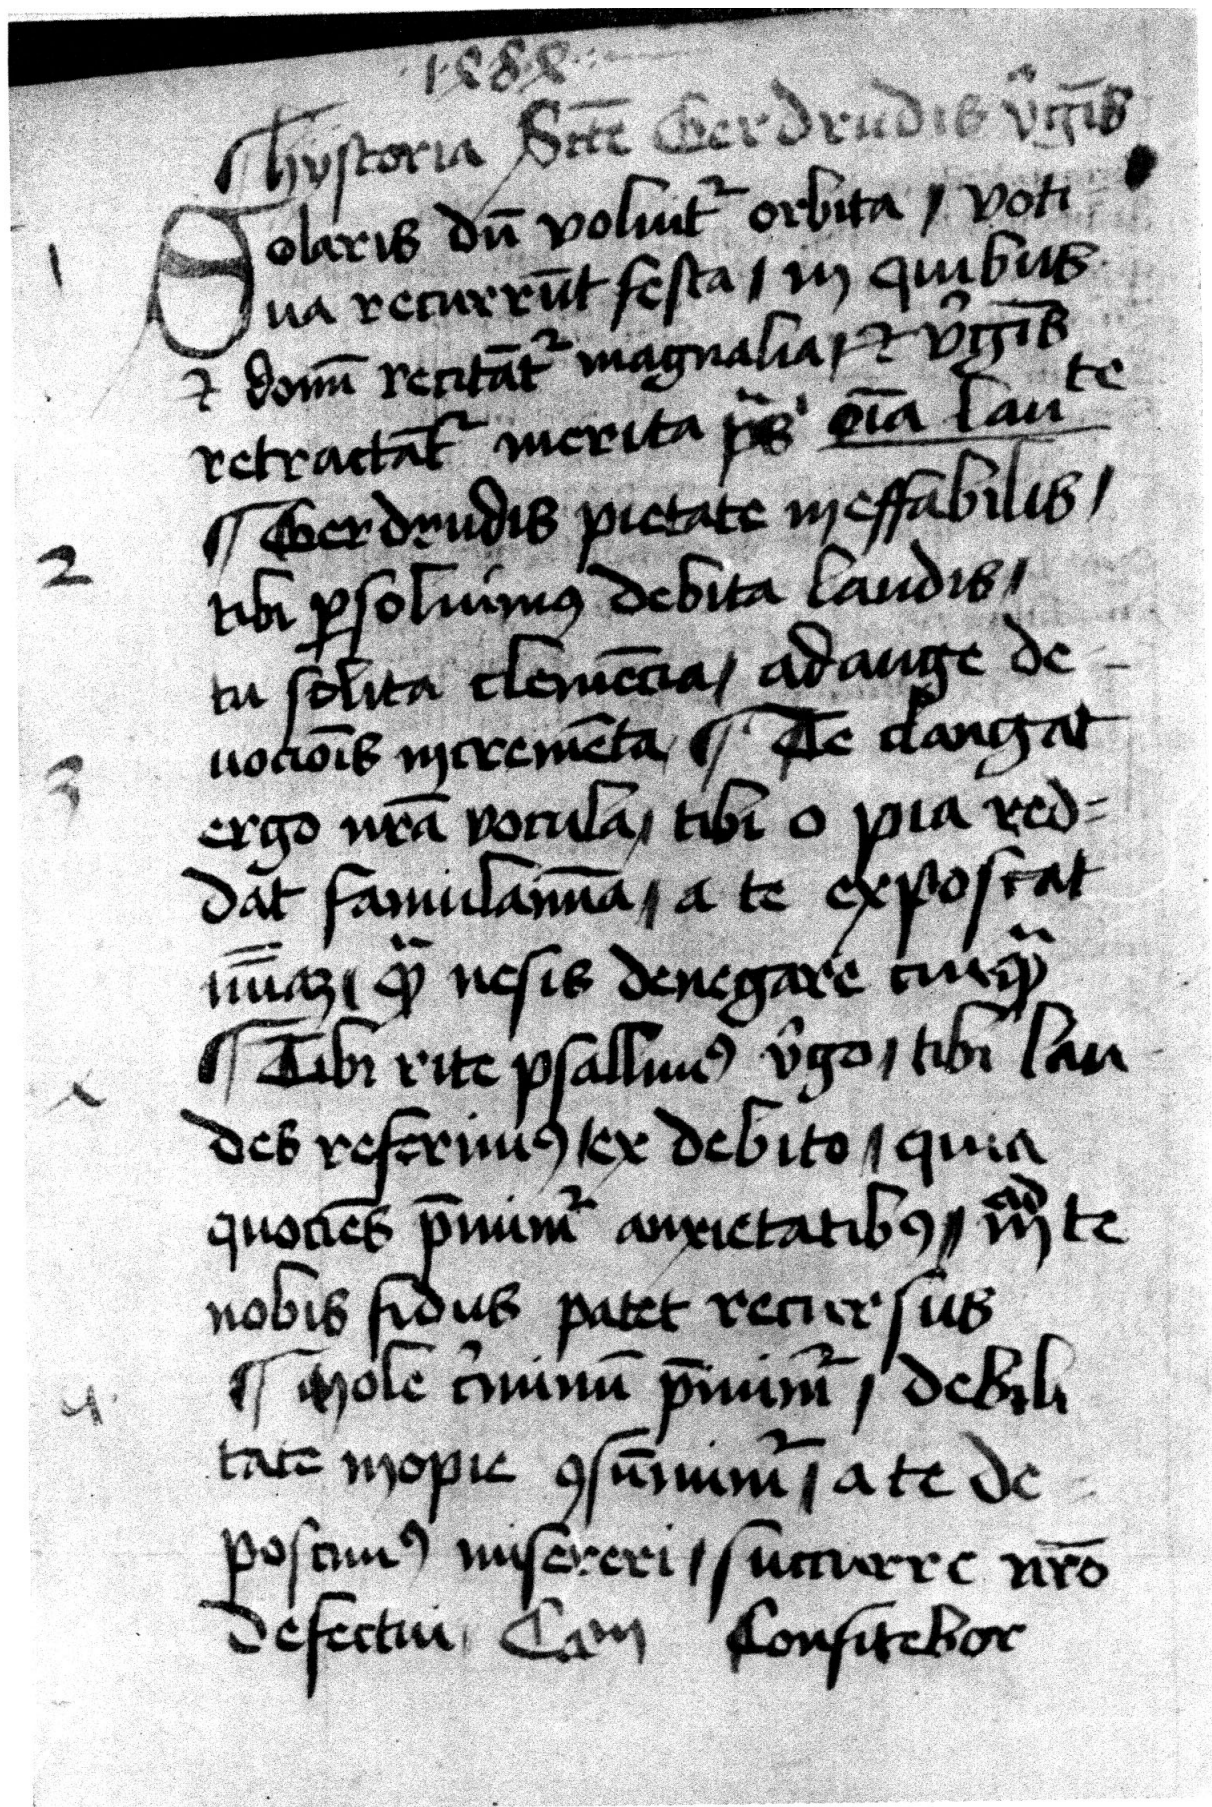 1888
¶ hystoria Scte Gerdrudis v̓gīs
1 Solaris dū voluit᷑ orbita / voti
ua recurrūt festa / in quibus
⁊ domī recitāt᷑ magnalia / ⁊ v̓gīs
retractāt᷑ merita p̄s oīa lau te
2 ¶ Gerdrudis pietate ineffabilis /
tibi ꝑsoluimꝰ debita laudis /
tu solita clemēcia / adauge de
uocōis incremēta / ¶ Te clangat
3 ergo nrā vocula / tibi o pia red=
dāt famulamīa / a te exposcat
nesis denegare
¶ Tibi rite psallimꝰ v̓go / tibi lau
des referimꝰ / ex debito / quia
quociēs p̄mim᷑ anxietatibꝰ / ad te
nobis fidus patet recursus
4 ¶ Mole c̓minū p̄mim᷑ / debili
tate inopie ꝯsūmim᷑ / a te de
poscimꝰ misereri / succurre nrō
defectui / Cam Confitebor